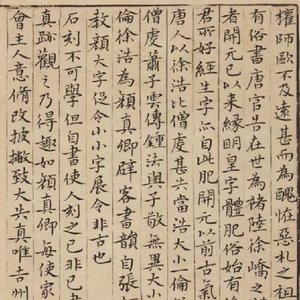 權師歐不及遠甚而為醜怪惡札之祖
有俗書唐官告在世為褚陸徐嶠之
者開元已来緣明皇字體肥俗始有
君所好經生字亦自此肥開元以前古氣
唐人以徐浩比僧虔甚失當浩大小一倫
僧虔蕭子雲傳鍾法與子敬無異大小
倫徐浩為顏真卿辟客書韻自張
教顏大字促令小小字展令非古也
石刻不可學但自書使人刻之已非己
真跡觀之乃得趣如顏真卿每使家
會主人意脩改披撇致大失真唯吉州